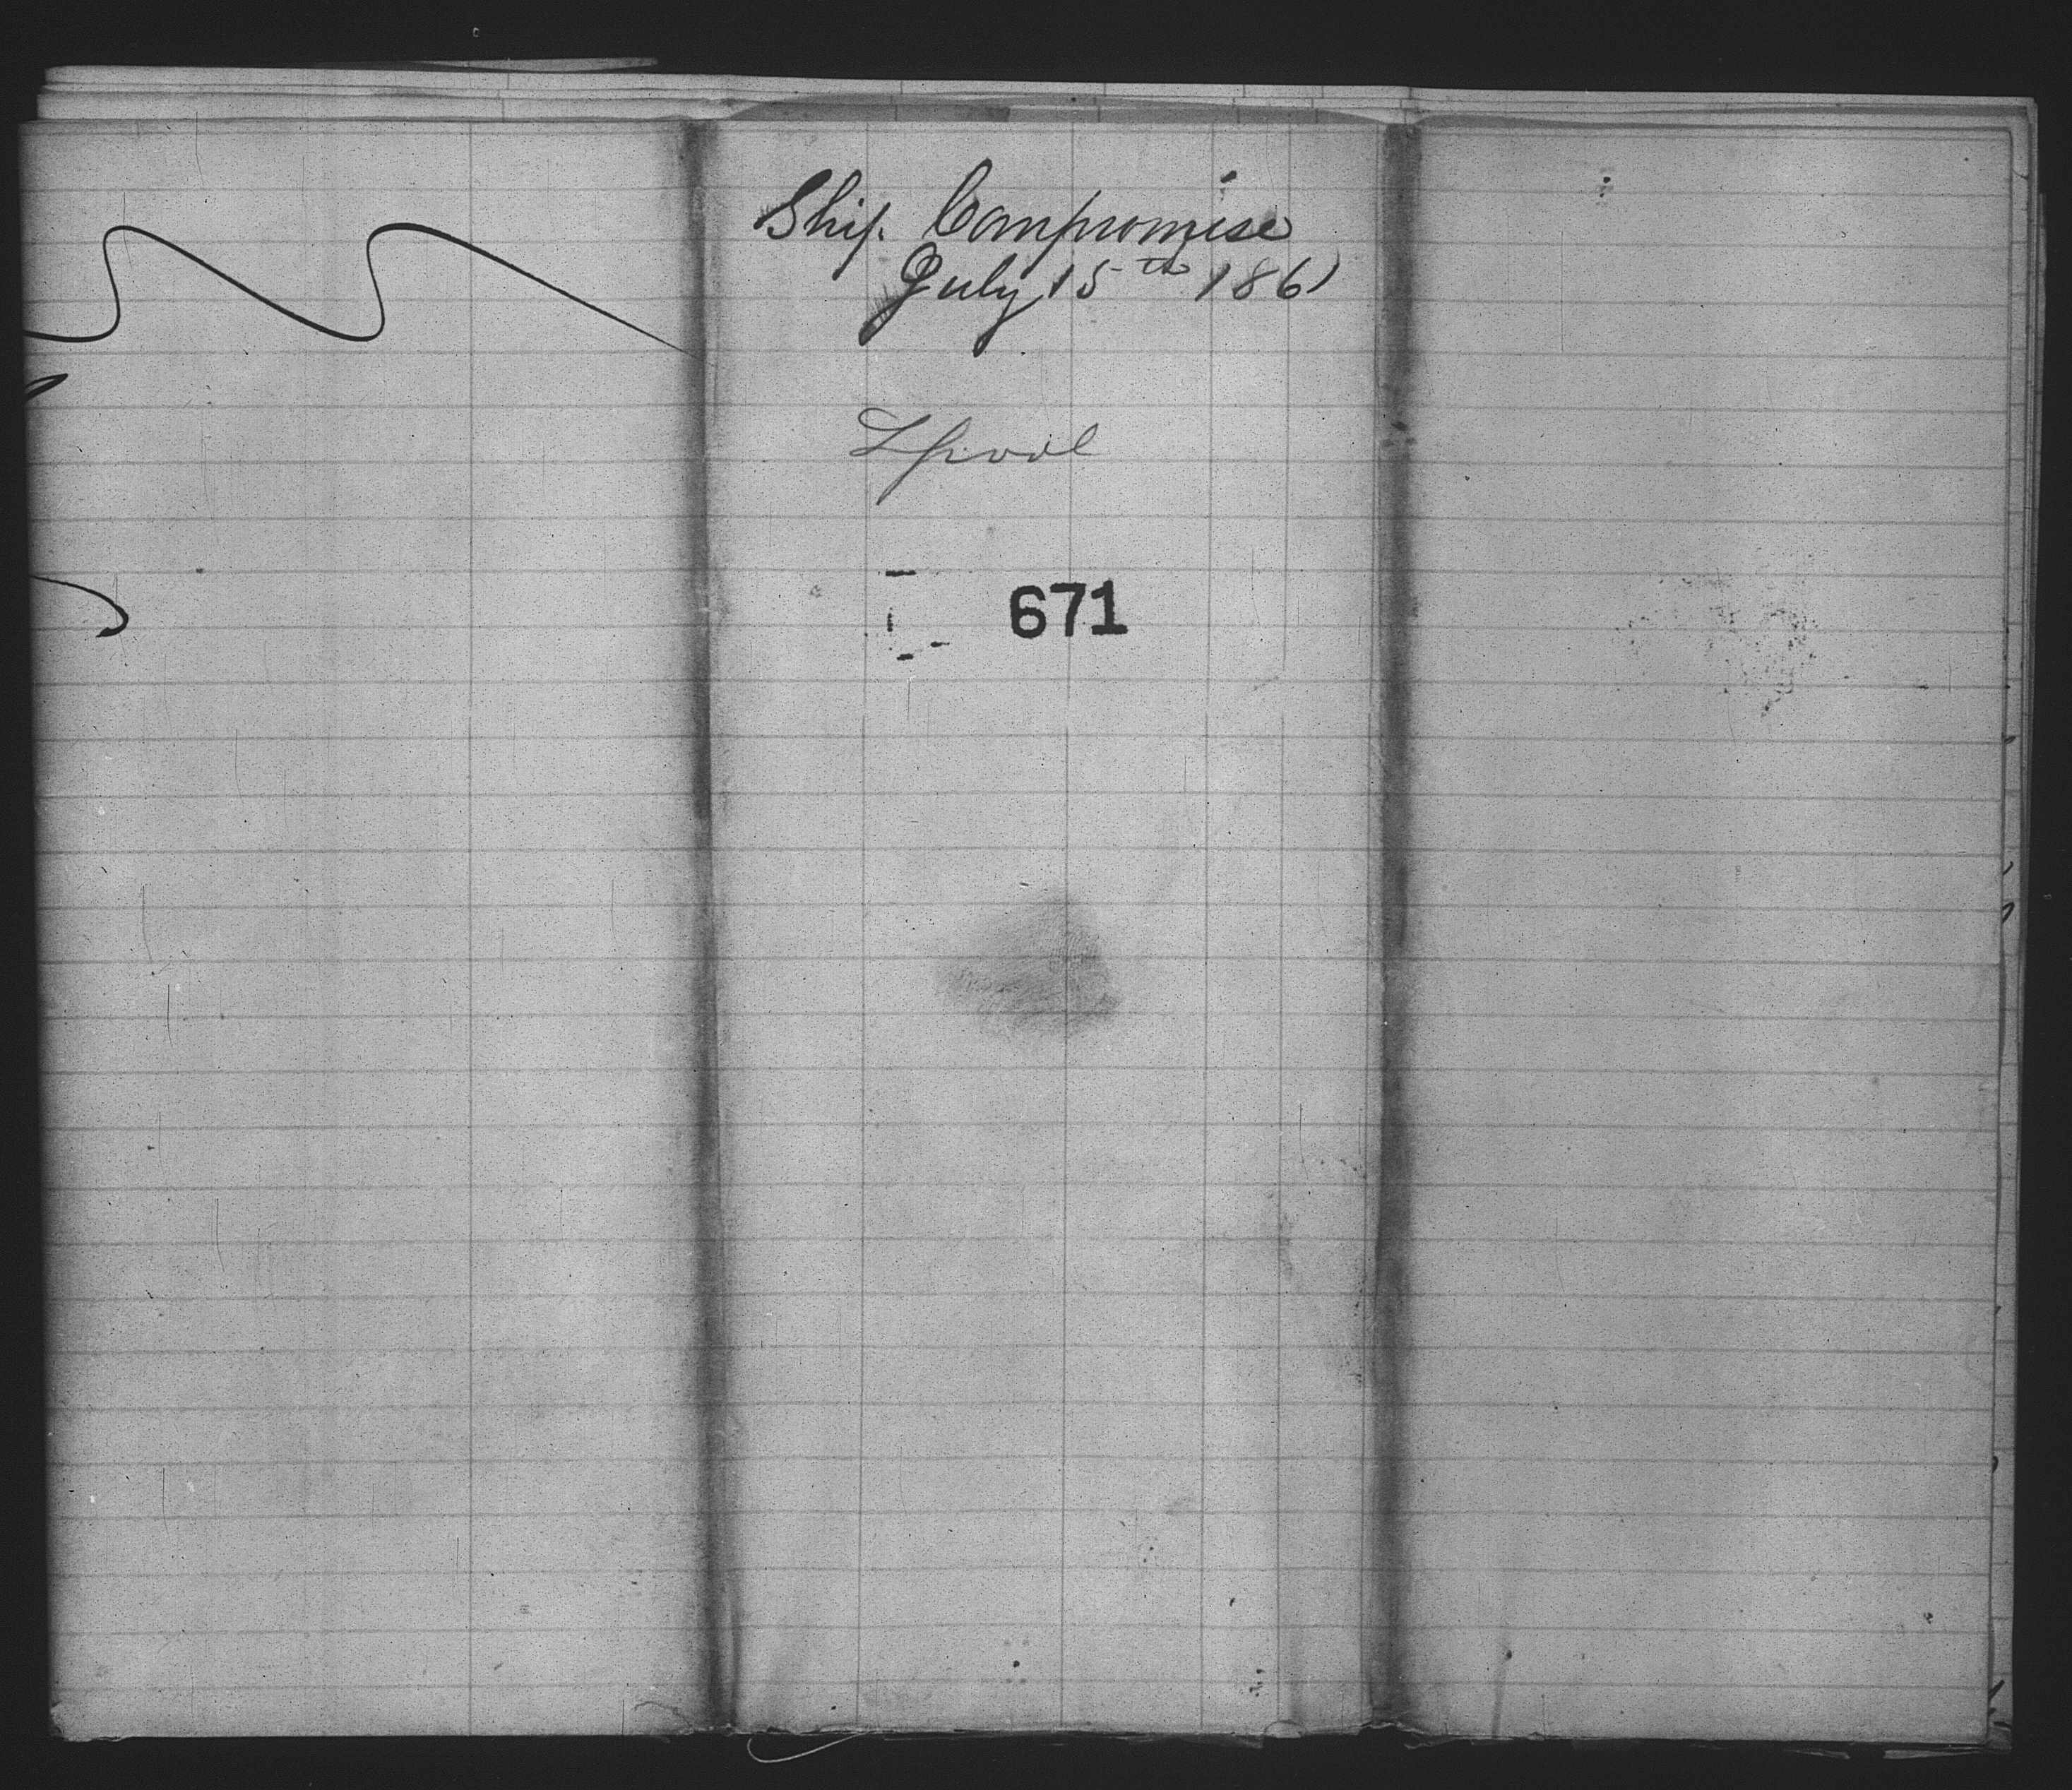 Ship Compromise
July 15th 1861
Lpool
671